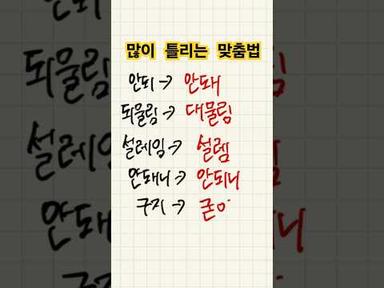 많이 틀리는 맞춤법
안되 → 안돼
되물림 → 대물림
설레임 → 설렘
안돼니 → 안되니
구지 → 굳이